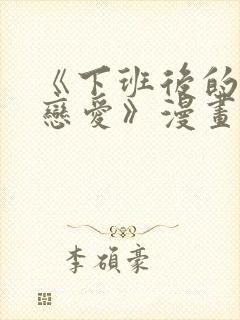 《下班後的
戀愛》漫畫
李碩豪